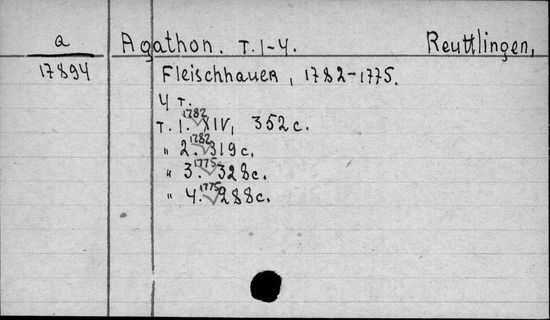 a
17894
Agathon. T. 1-4. Reuttlingen,
Fleischhauer, 1782-1775.
4 т.
T. 1. 1782 XIV, 352 c.
" 2. 1782 319 c.
" 3. 1775 328 c.
" 4. 1775 288 c.